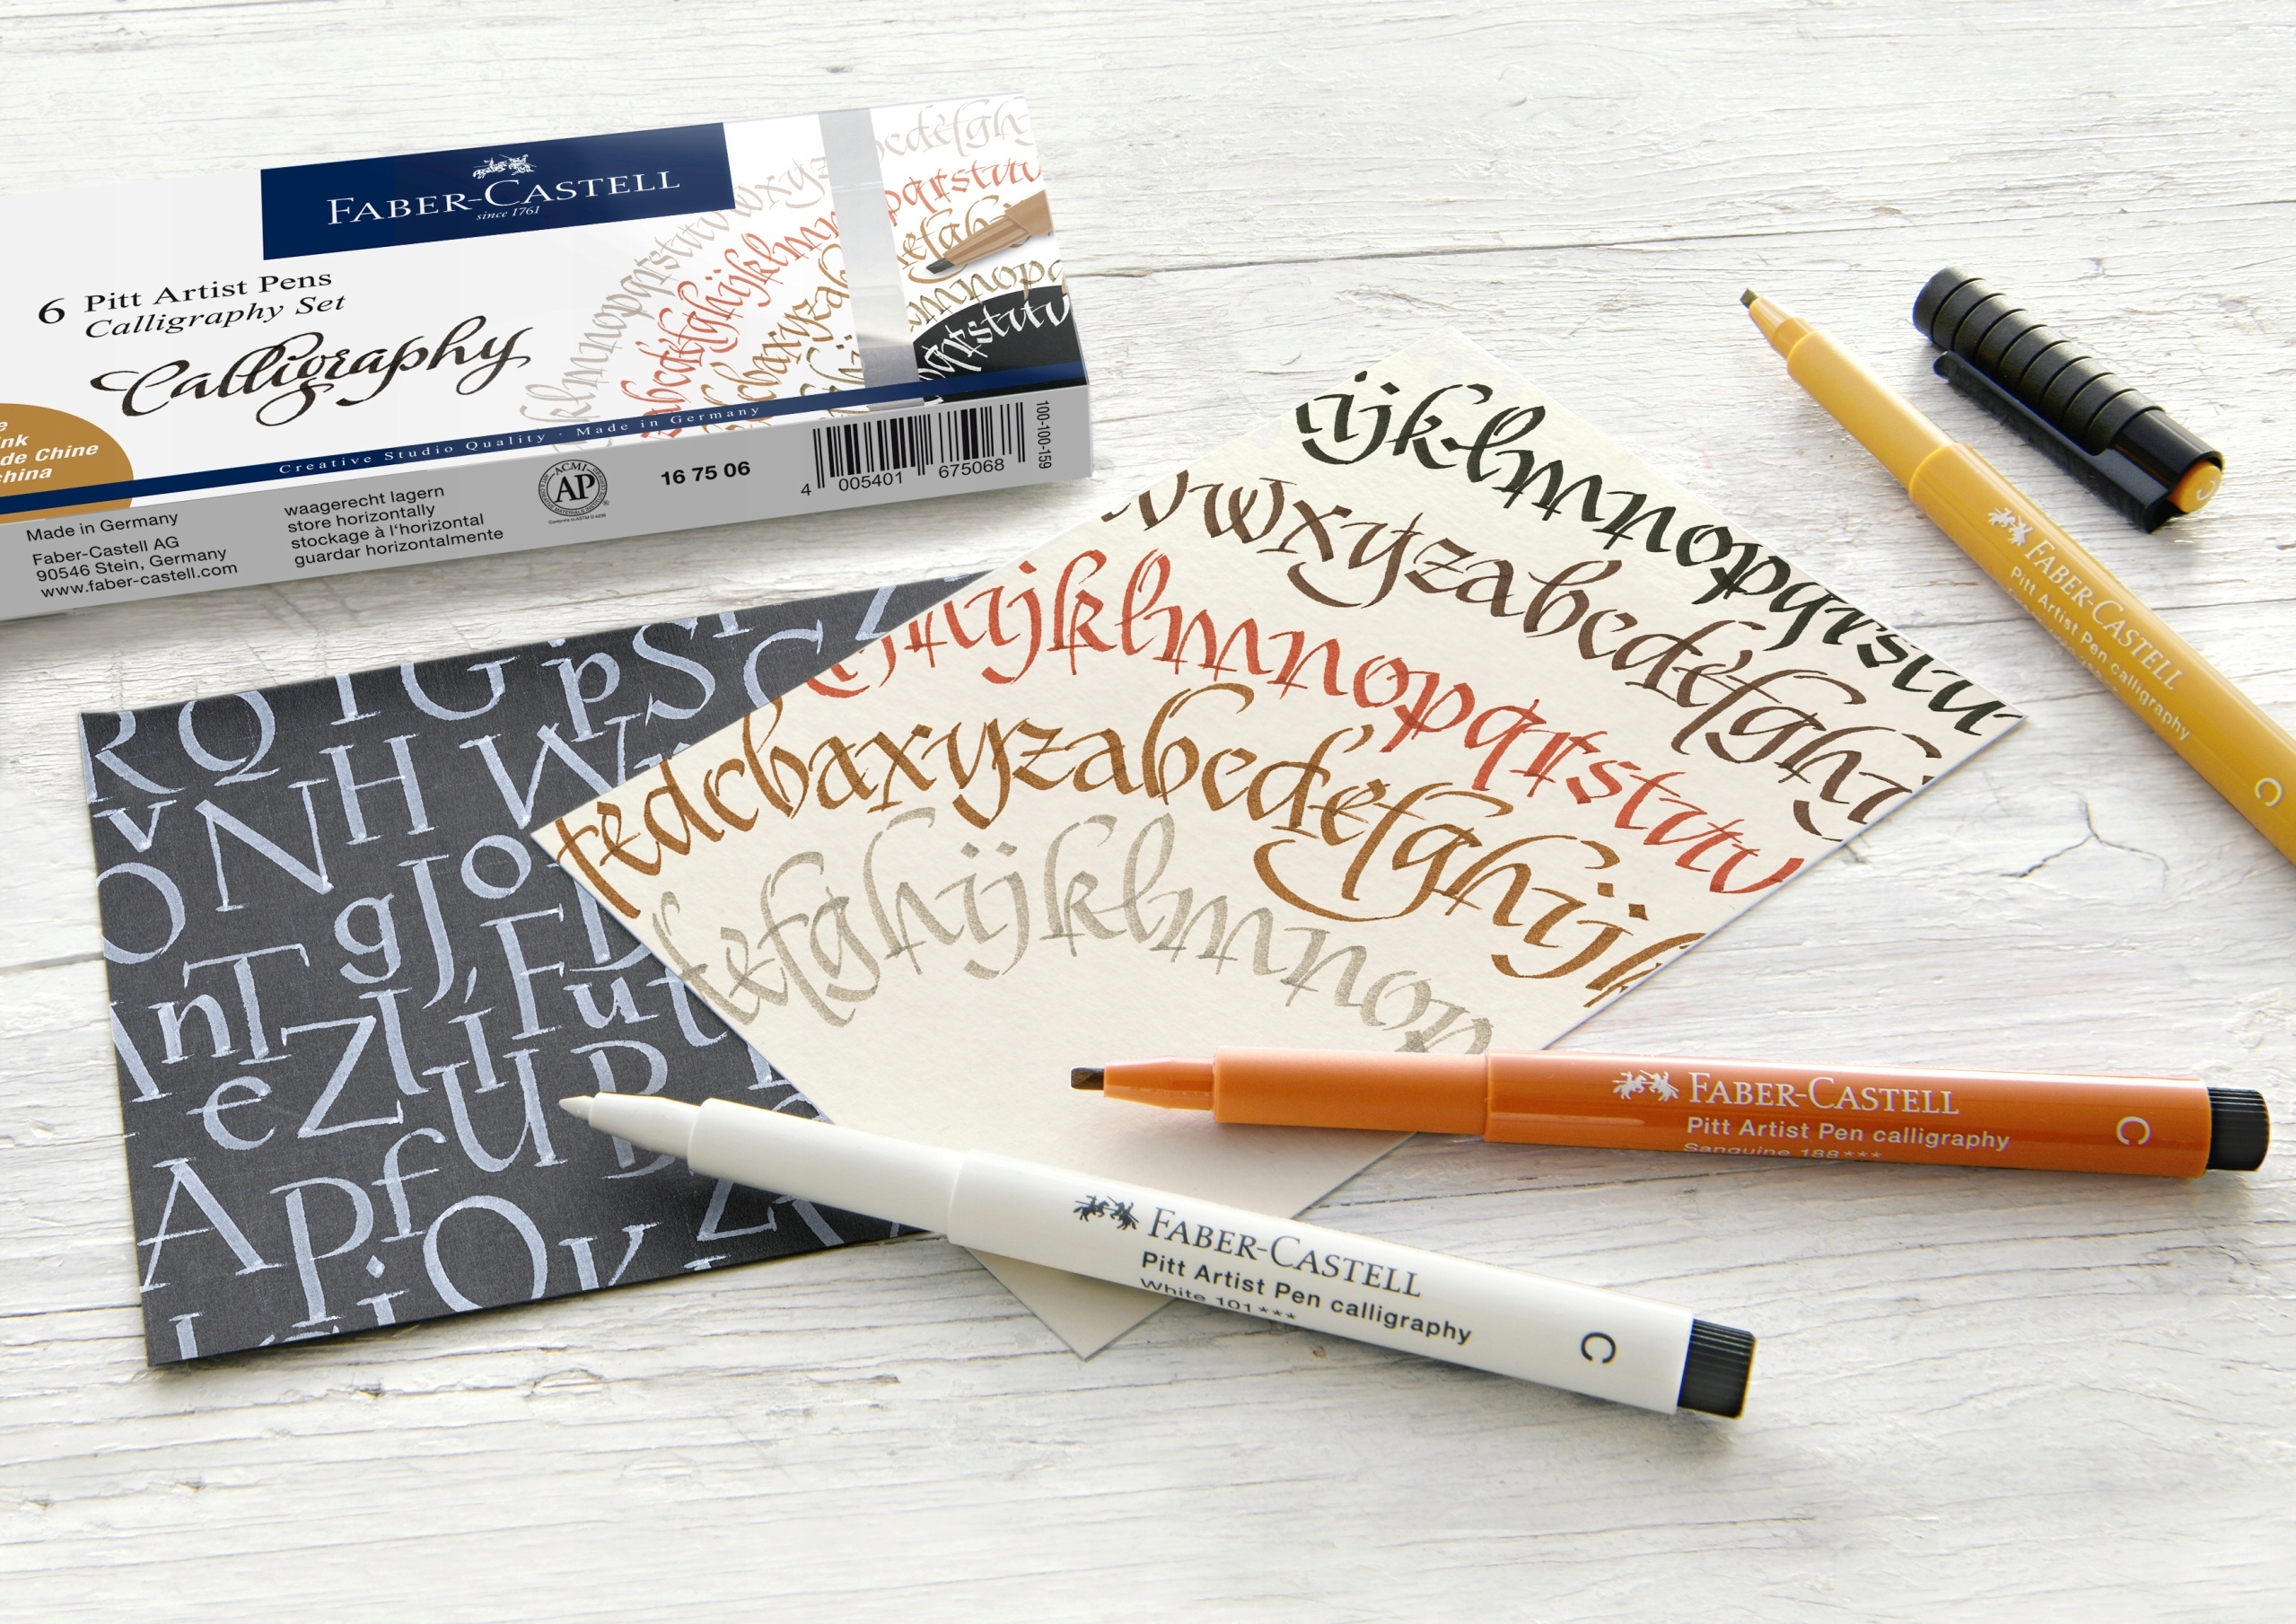 FABER-CASTELL
since 1761
6 Pitt Artist Pens
Calligraphy Set
Calligraphy
de Chine
china
Creative Studio Quality · Made in Germany
Made in Germany
Faber-Castell AG
90546 Stein, Germany
www.faber-castell.com
waagerecht lagern
store horizontally
stockage à l'horizontal
guardar horizontalmente
ACMI
AP
16 75 06
4 005401 675068
100-100-159
ijklmnopqrstu
vwxyzabcdefghi
hijklmnopqrstuv
fedcbaxyzabcdefghijk
defghijklmnop
R Q T G p S C Z
V N H W
O g J o
n T l F u t
e Z í U B
A p f
i O K
FABER-CASTELL
Pitt Artist Pen calligraphy
C
FABER-CASTELL
Pitt Artist Pen calligraphy
Sanguine 188***
C
FABER-CASTELL
Pitt Artist Pen calligraphy
White 101***
C